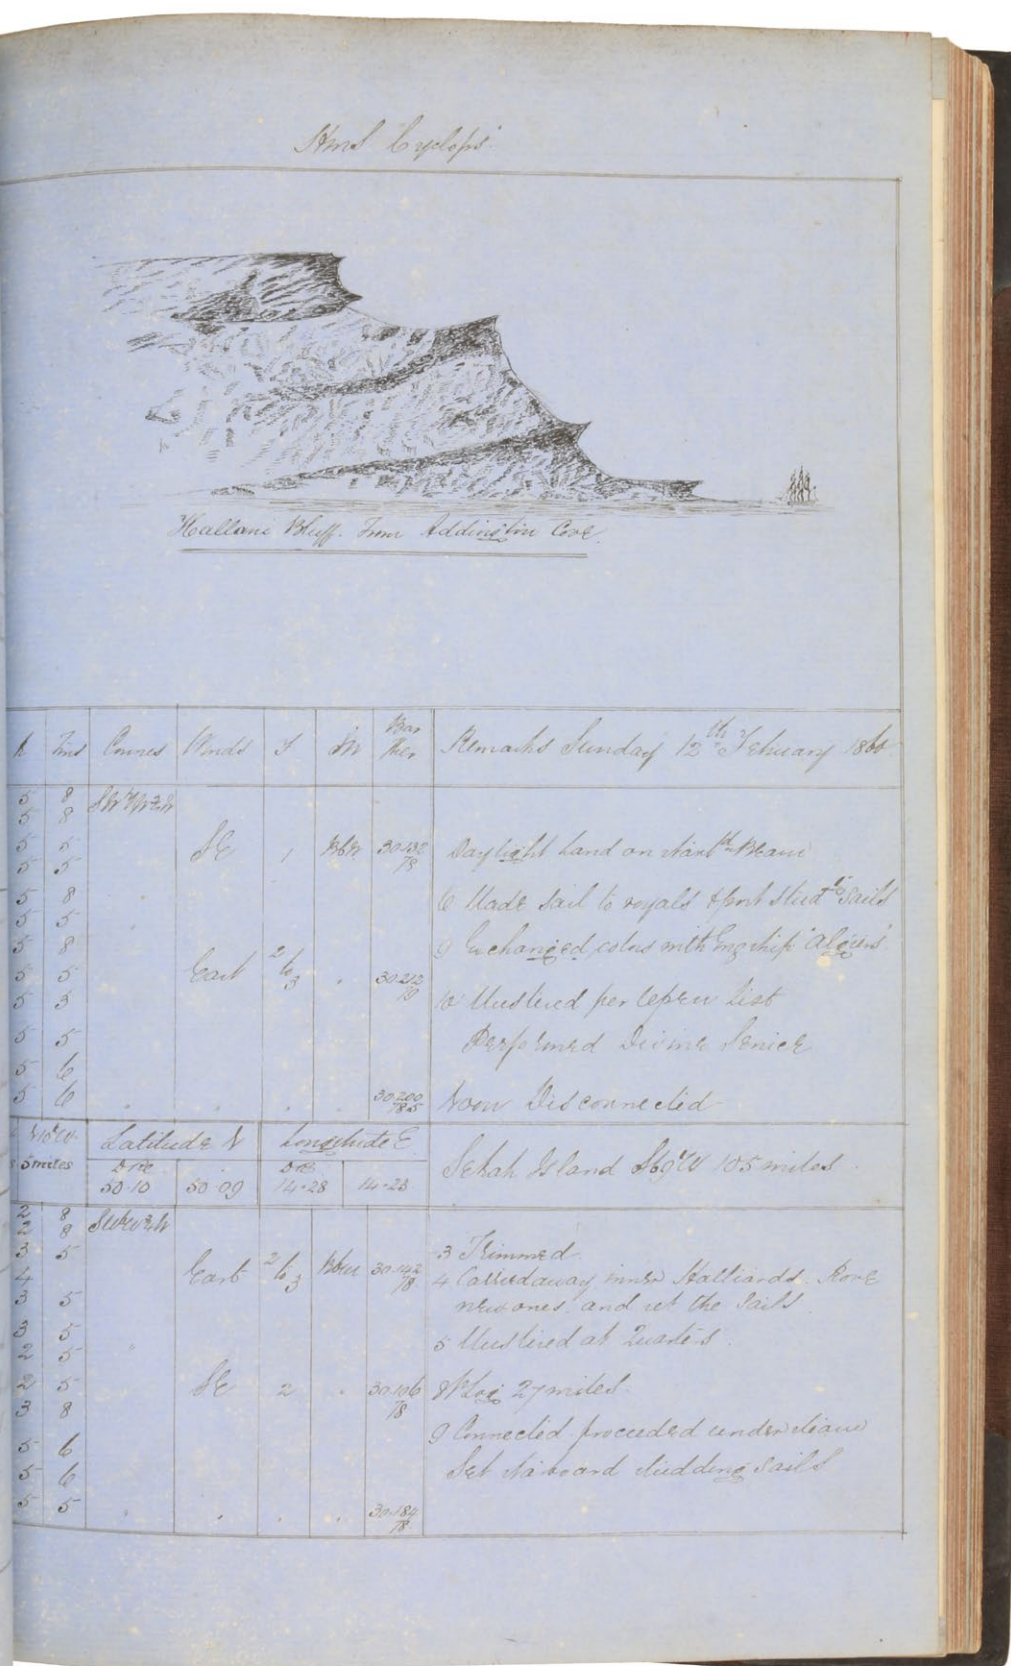 HMS "Cyclops"
Hallani Bluff. From Addington Cove.
K Fms Courses Winds F W Bar Ther Remarks Sunday 12th February 1860
5 8
5 8
5 5 SE 1 30.132 Daylight Land on Starbd Beam
5 5 78
5 8 6 Made Sail to royals & port studg Sails
5 5
5 8 9 Exchanged colors with Eng ship "Algiers"
5 5 East 2 to 3 30.212
5 3 79 10 Mustered per List
5 5 Performed Divine Service
5 6
5 6 30.200 78.5 Noon Disconnected
Latitude N Longitude E
miles DR DR
50.10 50.09 14.28 14.28
105 miles
2 8
2 8
3 5 3 Trimmed
4 East 2 to 3 30.142 78 4 Carried away inner Halliards. Rove
3 5 new ones. and set the Sails
3 5 5 Mustered at Quarters
2 5
2 5 SE 2 30.106 8 Log 27 miles
3 8 78
5 6 9 Connected proceeded under steam
5 6 Set Starboard studding Sails
5 5 30.184 78